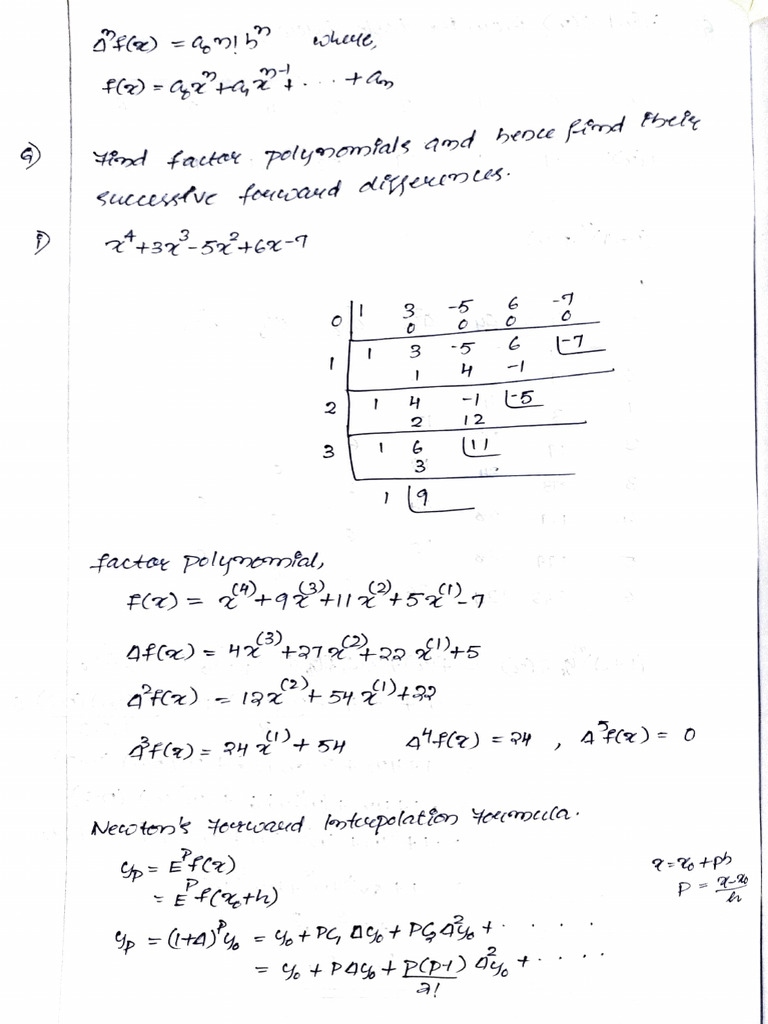 Δⁿf(x) = a₀ n! hⁿ where,
f(x) = a₀xⁿ + a₁xⁿ⁻¹ + . . . + aₙ
Q) Find factor polynomials and hence find their
successive forward differences.
i) x⁴+3x³-5x²+6x-7
0 | 1 3 -5 6 -7
0 0 0 0
1 | 1 3 -5 6 |-7
1 4 -1
2 | 1 4 -1 |-5
2 12
3 | 1 6 |11
3
1 |9
factor polynomial,
f(x) = x⁽⁴⁾+9x⁽³⁾+11x⁽²⁾+5x⁽¹⁾-7
Δf(x) = 4x⁽³⁾+27x⁽²⁾+22x⁽¹⁾+5
Δ²f(x) = 12x⁽²⁾+54x⁽¹⁾+22
Δ³f(x) = 24x⁽¹⁾+54 Δ⁴f(x) = 24 , Δ⁵f(x) = 0
Newton's Forward Interpolation Formula.
yp = Eᵖf(x) x=x₀+ph
= Eᵖf(x₀+h) P = (x-x₀)/h
yp = (1+Δ)ᵖy₀ = y₀ + PC₁ Δy₀ + PC₂Δ²y₀ + . . . . .
= y₀ + PΔy₀ + P(P-1)/2! Δ²y₀ + . . . . .